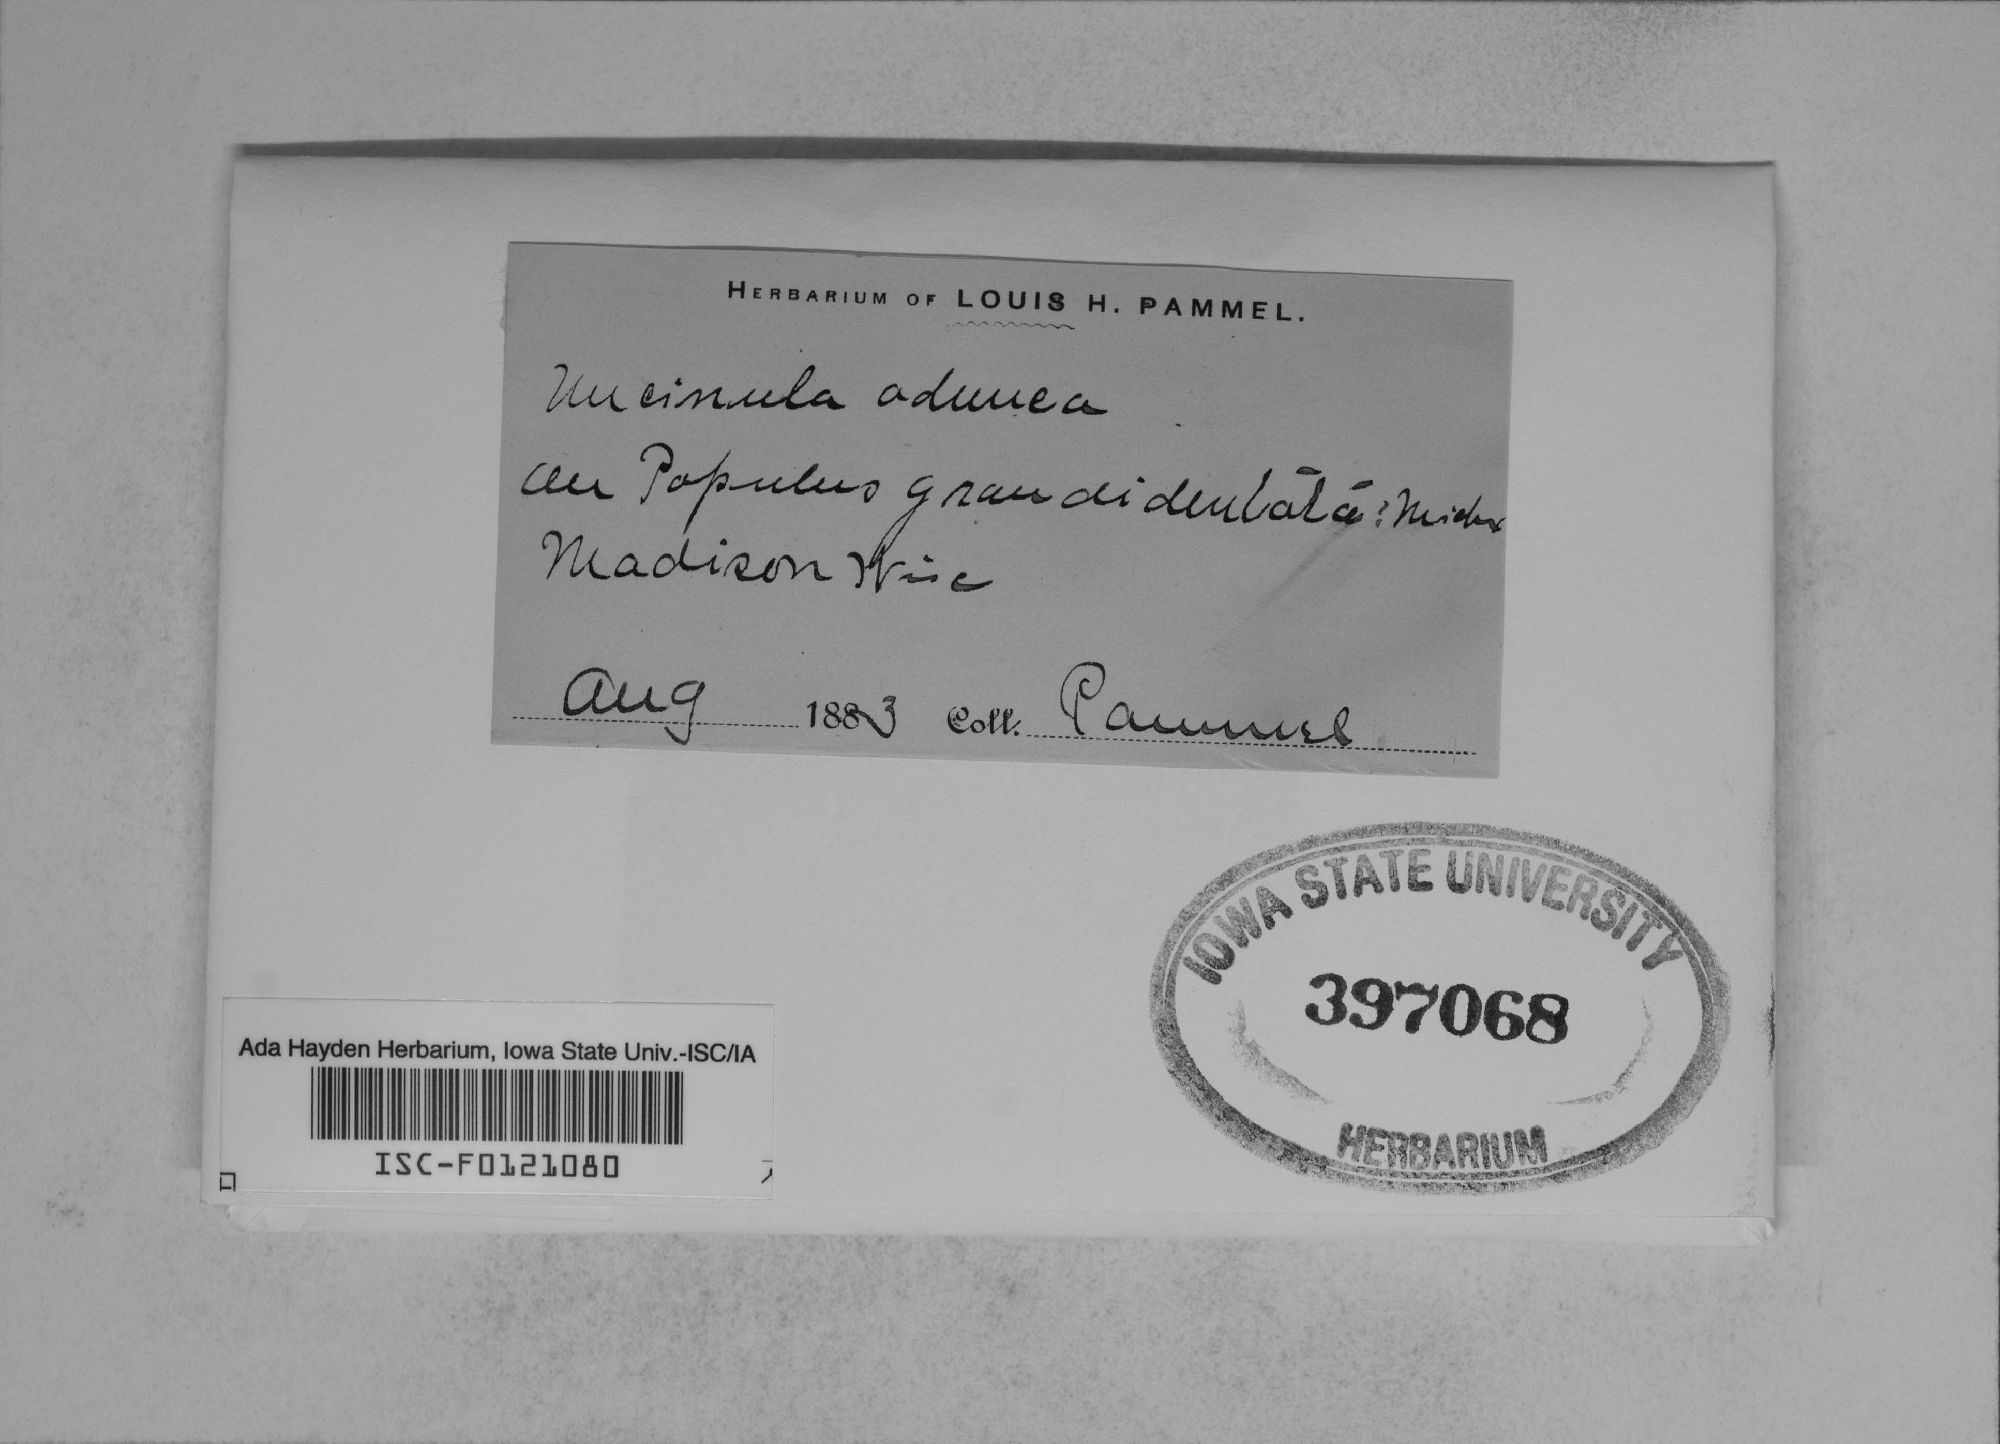 HERBARIUM OF LOUIS H. PAMMEL.
Uncinula adunca
on Populus grandidentata: Michx
Madison Wis
Aug 1883 Coll. Pammel
IOWA STATE UNIVERSITY
397068
HERBARIUM
Ada Hayden Herbarium, Iowa State Univ.-ISC/IA
ISC-F0121080